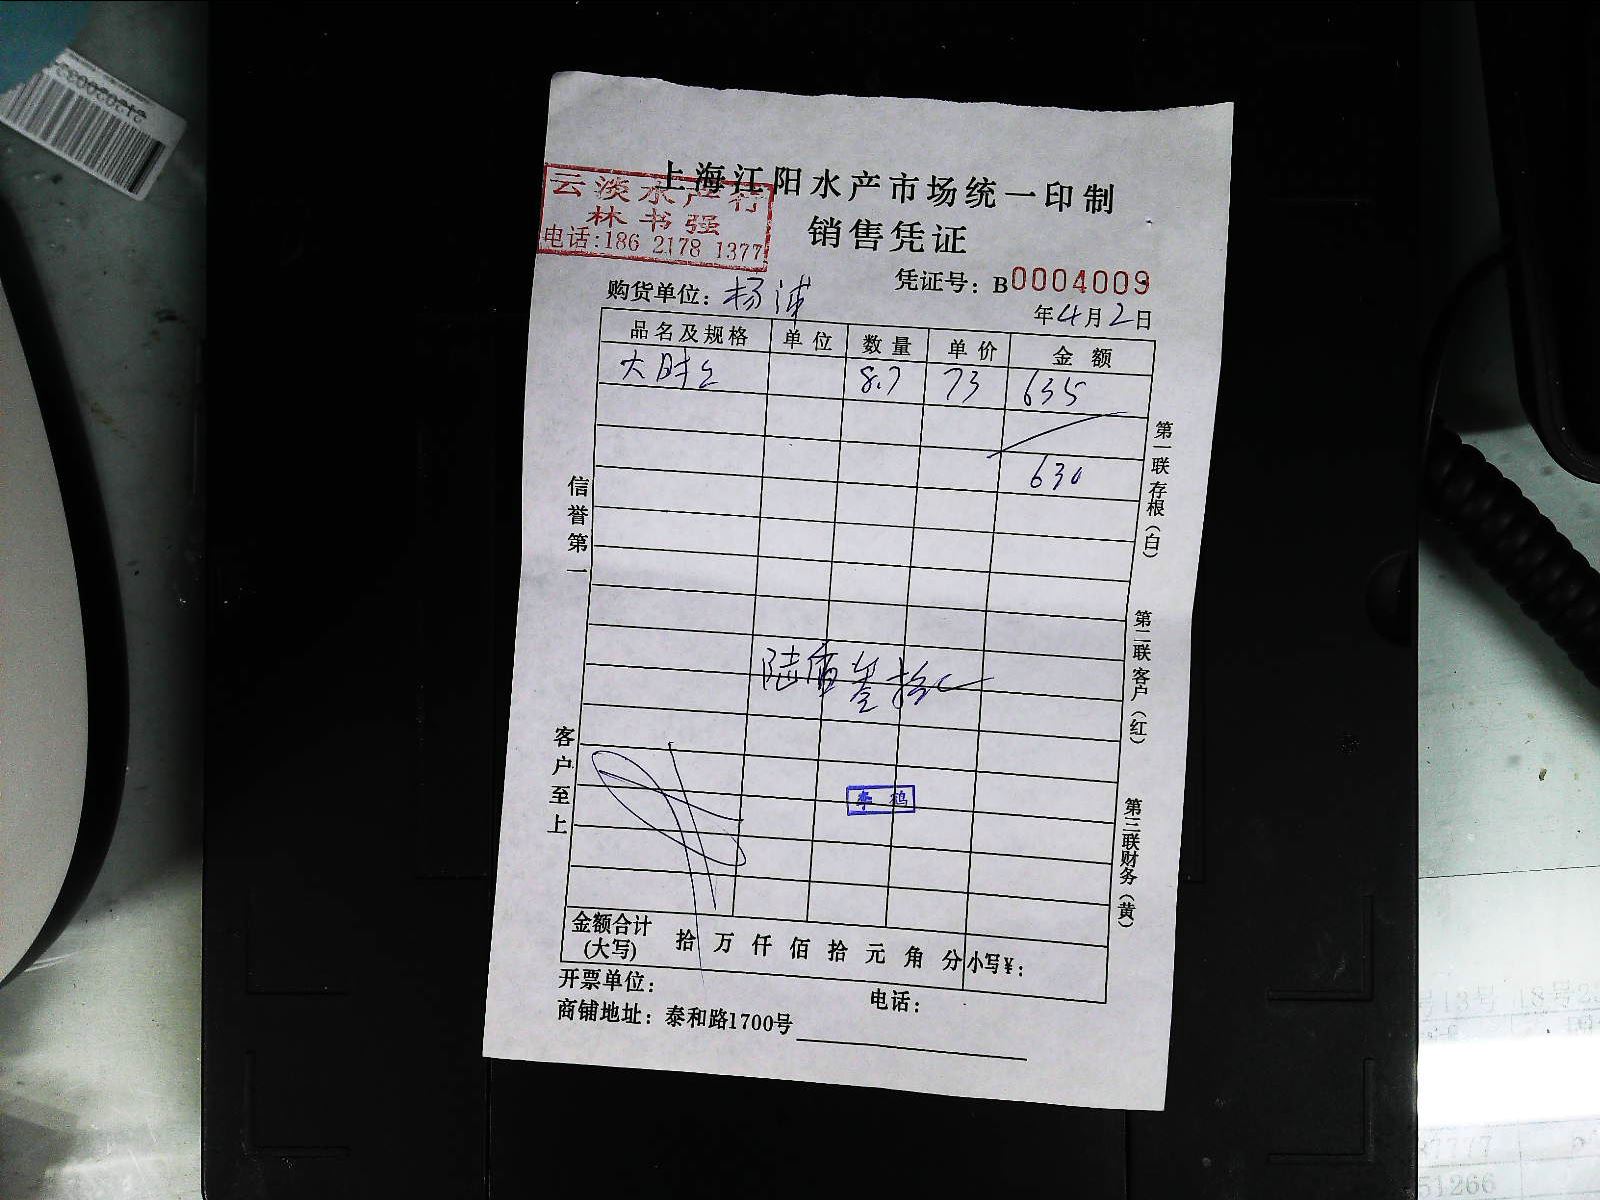 上海江阳水产市场统一印制
销售凭证
云淡水产行
林书强
电话:186 2178 1377
凭证号：B0004009
购货单位：杨浦
年4月2日
品名及规格 单位 数量 单价 金额
8.7 73 635
630
陆佰叁拾
信誉第一
客户至上
第一联存根(白)
第二联客户(红)
第三联财务(黄)
金额合计(大写) 拾万仟佰拾元角分 小写¥：
开票单位： 电话：
商铺地址：泰和路1700号